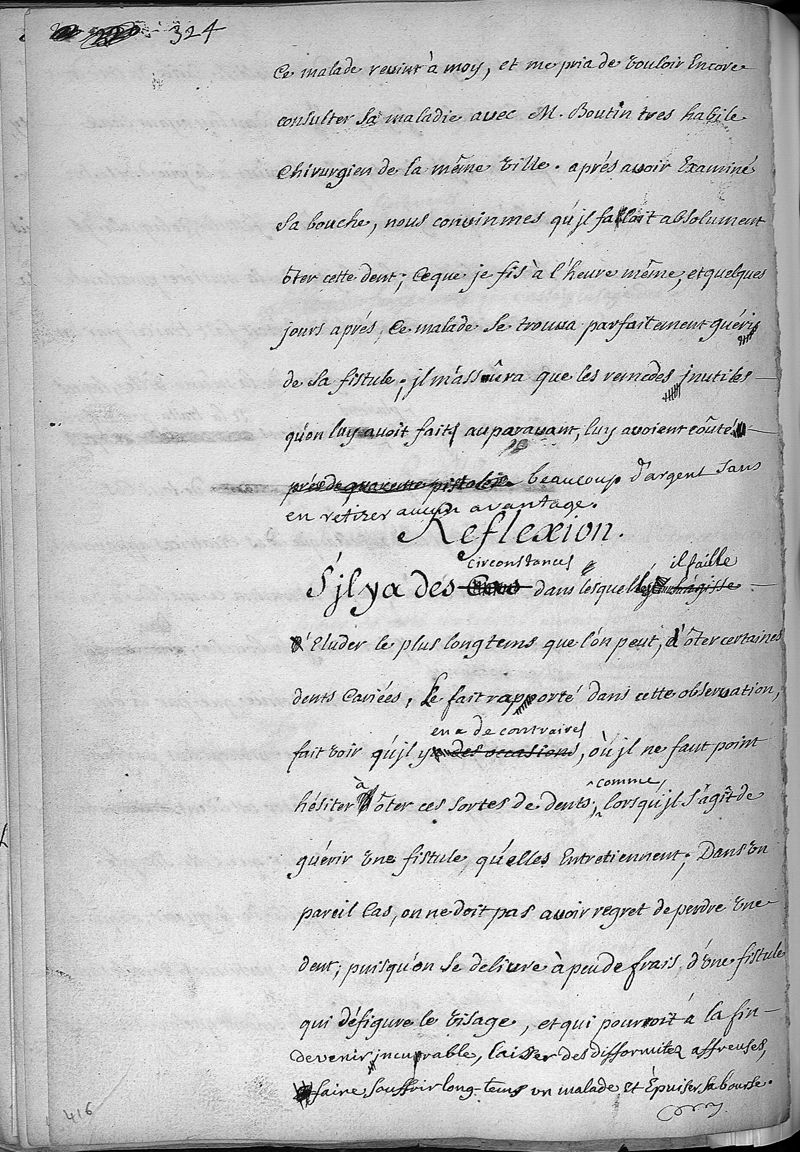 324
Ce malade revint à moy, et me pria de vouloir Encore
consulter sa maladie avec M. Boutin tres habile
Chirurgien de la même ville. aprés avoir Examiné
sa bouche, nous convinmes qu'jl falloit absolument
ôter cette dent; Ceque je fis à l'heure même, et quelques
jours aprés, Ce malade se trouva parfaitement guéri
de sa fistule; jl m'assûra que les remedes jnutiles
qu'on luy avoit faits auparavant, luy avoient coûté
prés de quarante pistoles beaucoup d'argent sans
en retirer aucun avantage.
Reflexion.
circonstances il faille
S'jl y a des dans lesquelles
Eluder le plus longtems que l'on peut, d'ôter certaines
dents Cariées, Le fait rapporté dans cette observation,
en a de contraires
fait voir qu'jl y des occasions, où jl ne faut point
à comme,
hésiter ôter ces sortes de dents, lorsqu'jl s'agit de
guérir une fistule qu'elles Entretiennent; Dans un
pareil Cas, on ne doit pas avoir regret de perdre une
dent, puisqu'on se delivre à peu de frais, d'une fistule
qui défigure le visage, et qui pourroit à la fin
devenir jncurable, laisser des difformitez affreuses,
faire souffrir long-tems un malade et Epuiser sa bourse.
416